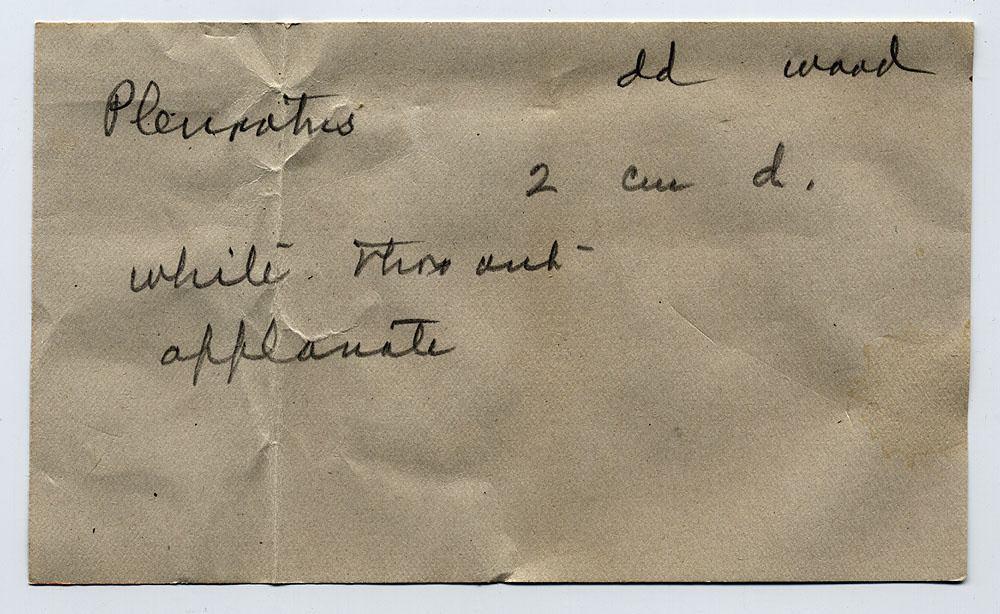 dd wood
Pleurotus
2 cm d.
white. thro out
applanate